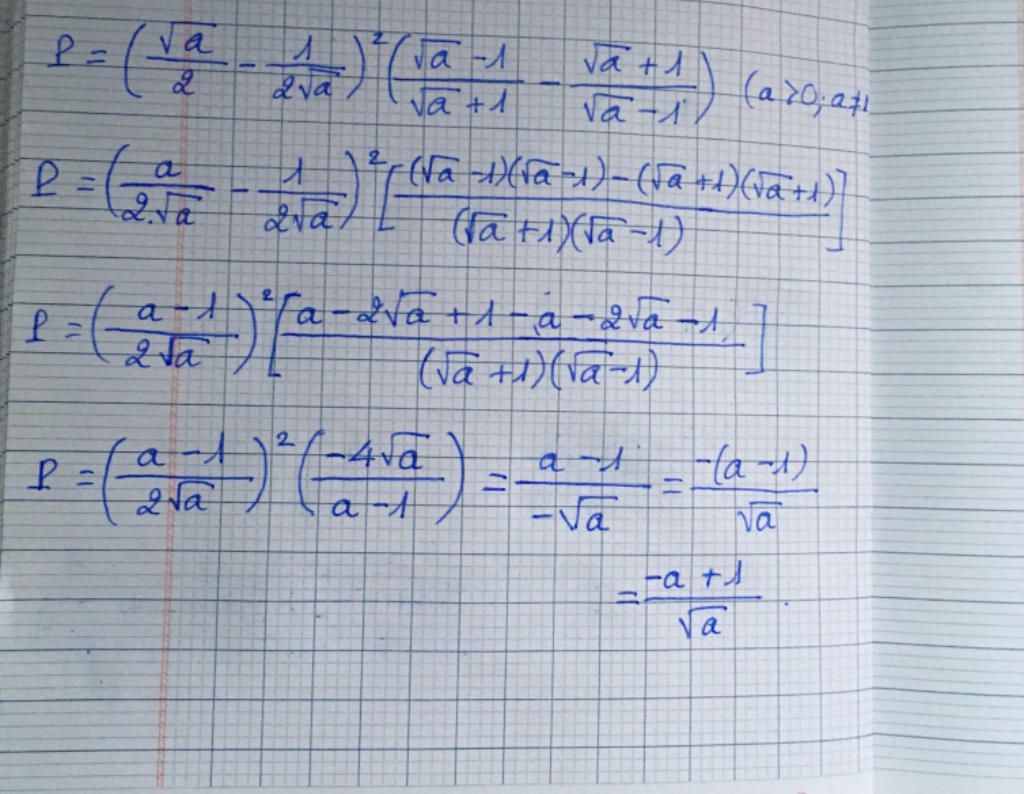 P = (√a/2 - 1/2√a)² (√a - 1/√a + 1 - √a + 1/√a - 1) (a > 0; a ≠ 1
P = (a/2.√a - 1/2√a)² [(√a - 1)(√a - 1) - (√a + 1)(√a + 1)/(√a + 1)(√a - 1)]
P = (a - 1/2√a)² [a - 2√a + 1 - a - 2√a - 1/(√a + 1)(√a - 1)]
P = (a - 1/2√a)² (-4√a/a - 1) = a - 1/-√a = -(a - 1)/√a
= -a + 1/√a .